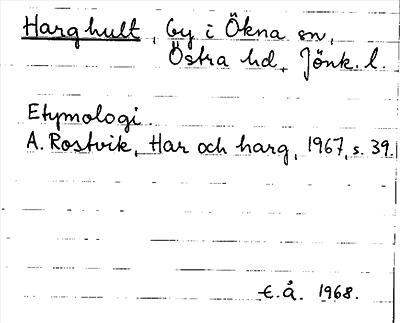 Harghult, by i Ökna sn,
Östra hd, Jönk. l.
Etymologi
A. Rostvik, Har och harg, 1967, s. 39.
E.Å. 1968.